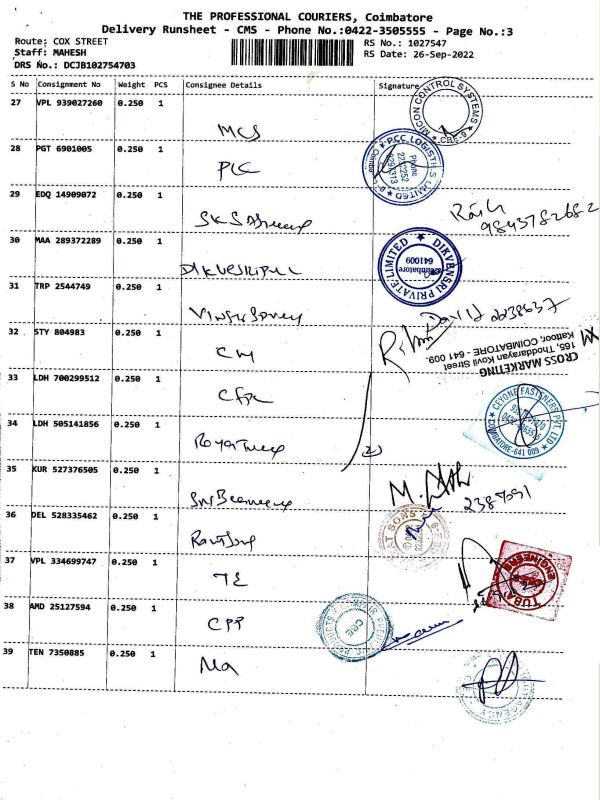 THE PROFESSIONAL COURIERS, Coimbatore
Delivery Runsheet - CMS - Phone No.:0422-3505555 - Page No.:3
Route: COX STREET
Staff: MAHESH
DRS No.: DCJB102754703
RS No.: 1027547
RS Date: 26-Sep-2022
S No Consignment No Weight PCS Consignee Details Signature
27 VPL 939027260 0.250 1
MCS
MICON CONTROL SYSTEMS
CBE-6
28 PGT 6901005 0.250 1
PLC
P.C.C LOGISTICS LIMITED
Phone
29 EDQ 14909072 0.250 1
9843782682
30 MAA 289372289 0.250 1
DIKVENSRI PRIVATE LIMITED
Coimbatore
641009
31 TRP 2544749 0.250 1
2238637
32 STY 804983 0.250 1
CM
CROSS MARKETING
165, Thoddarayan Kovil Street
Kattoor, COIMBATORE - 641 009.
33 LDH 700299512 0.250 1
CEYONE FASTENERS PVT. LTD
COIMBATORE-641 009
34 LDH 505141856 0.250 1
35 KUR 527376505 0.250 1
M.
36 DEL 528335462 0.250 1
37 VPL 334699747 0.250 1
TE
ENGINEERS
38 AMD 25127594 0.250 1
CPP
39 TEN 7350885 0.250 1
Ma
AGENCY